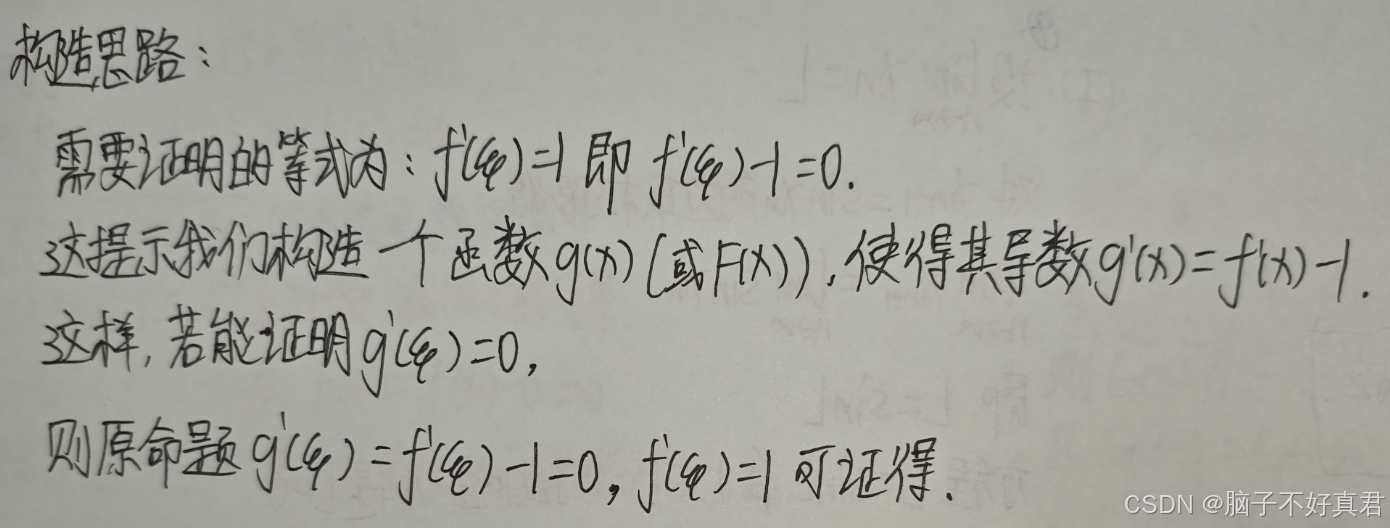 构造思路：
需要证明的等式为：f'(ξ)=1 即 f'(ξ)-1=0.
这提示我们构造一个函数g(x)(或F(x)),使得其导数g'(x)=f'(x)-1.
这样,若能证明g'(ξ)=0,
则原命题g'(ξ)=f'(ξ)-1=0,f'(ξ)=1可证得.
CSDN @脑子不好真君